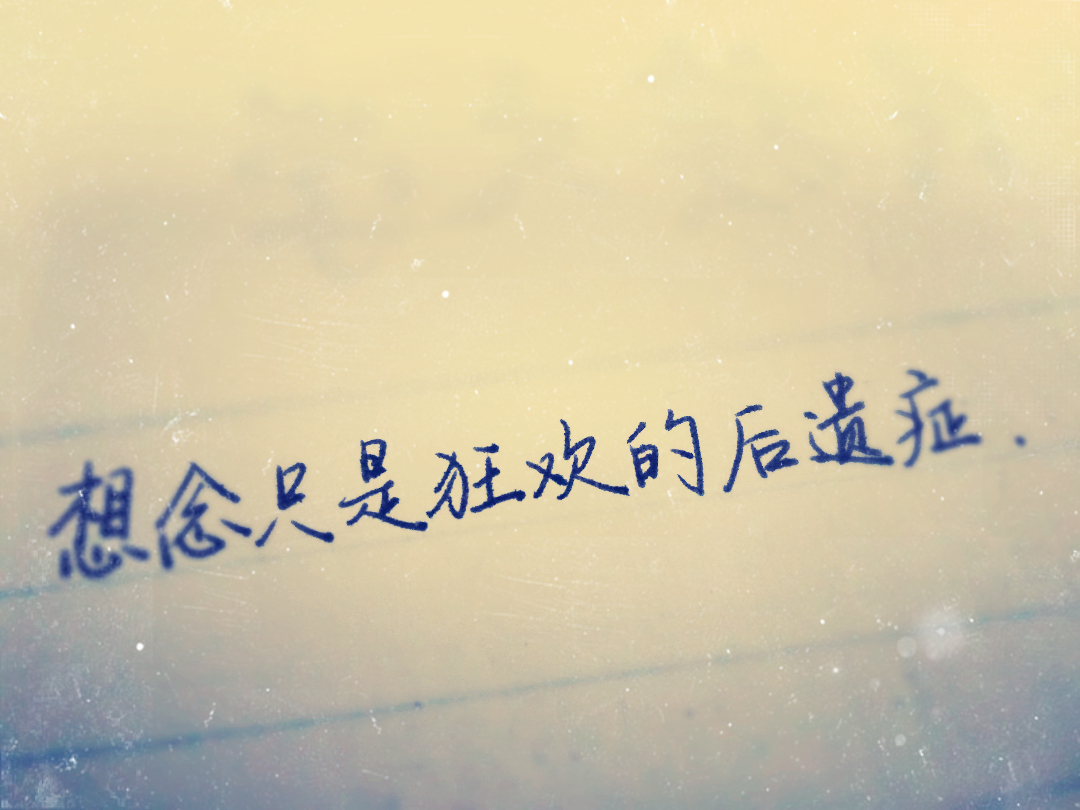 想念只是狂欢的后遗症.